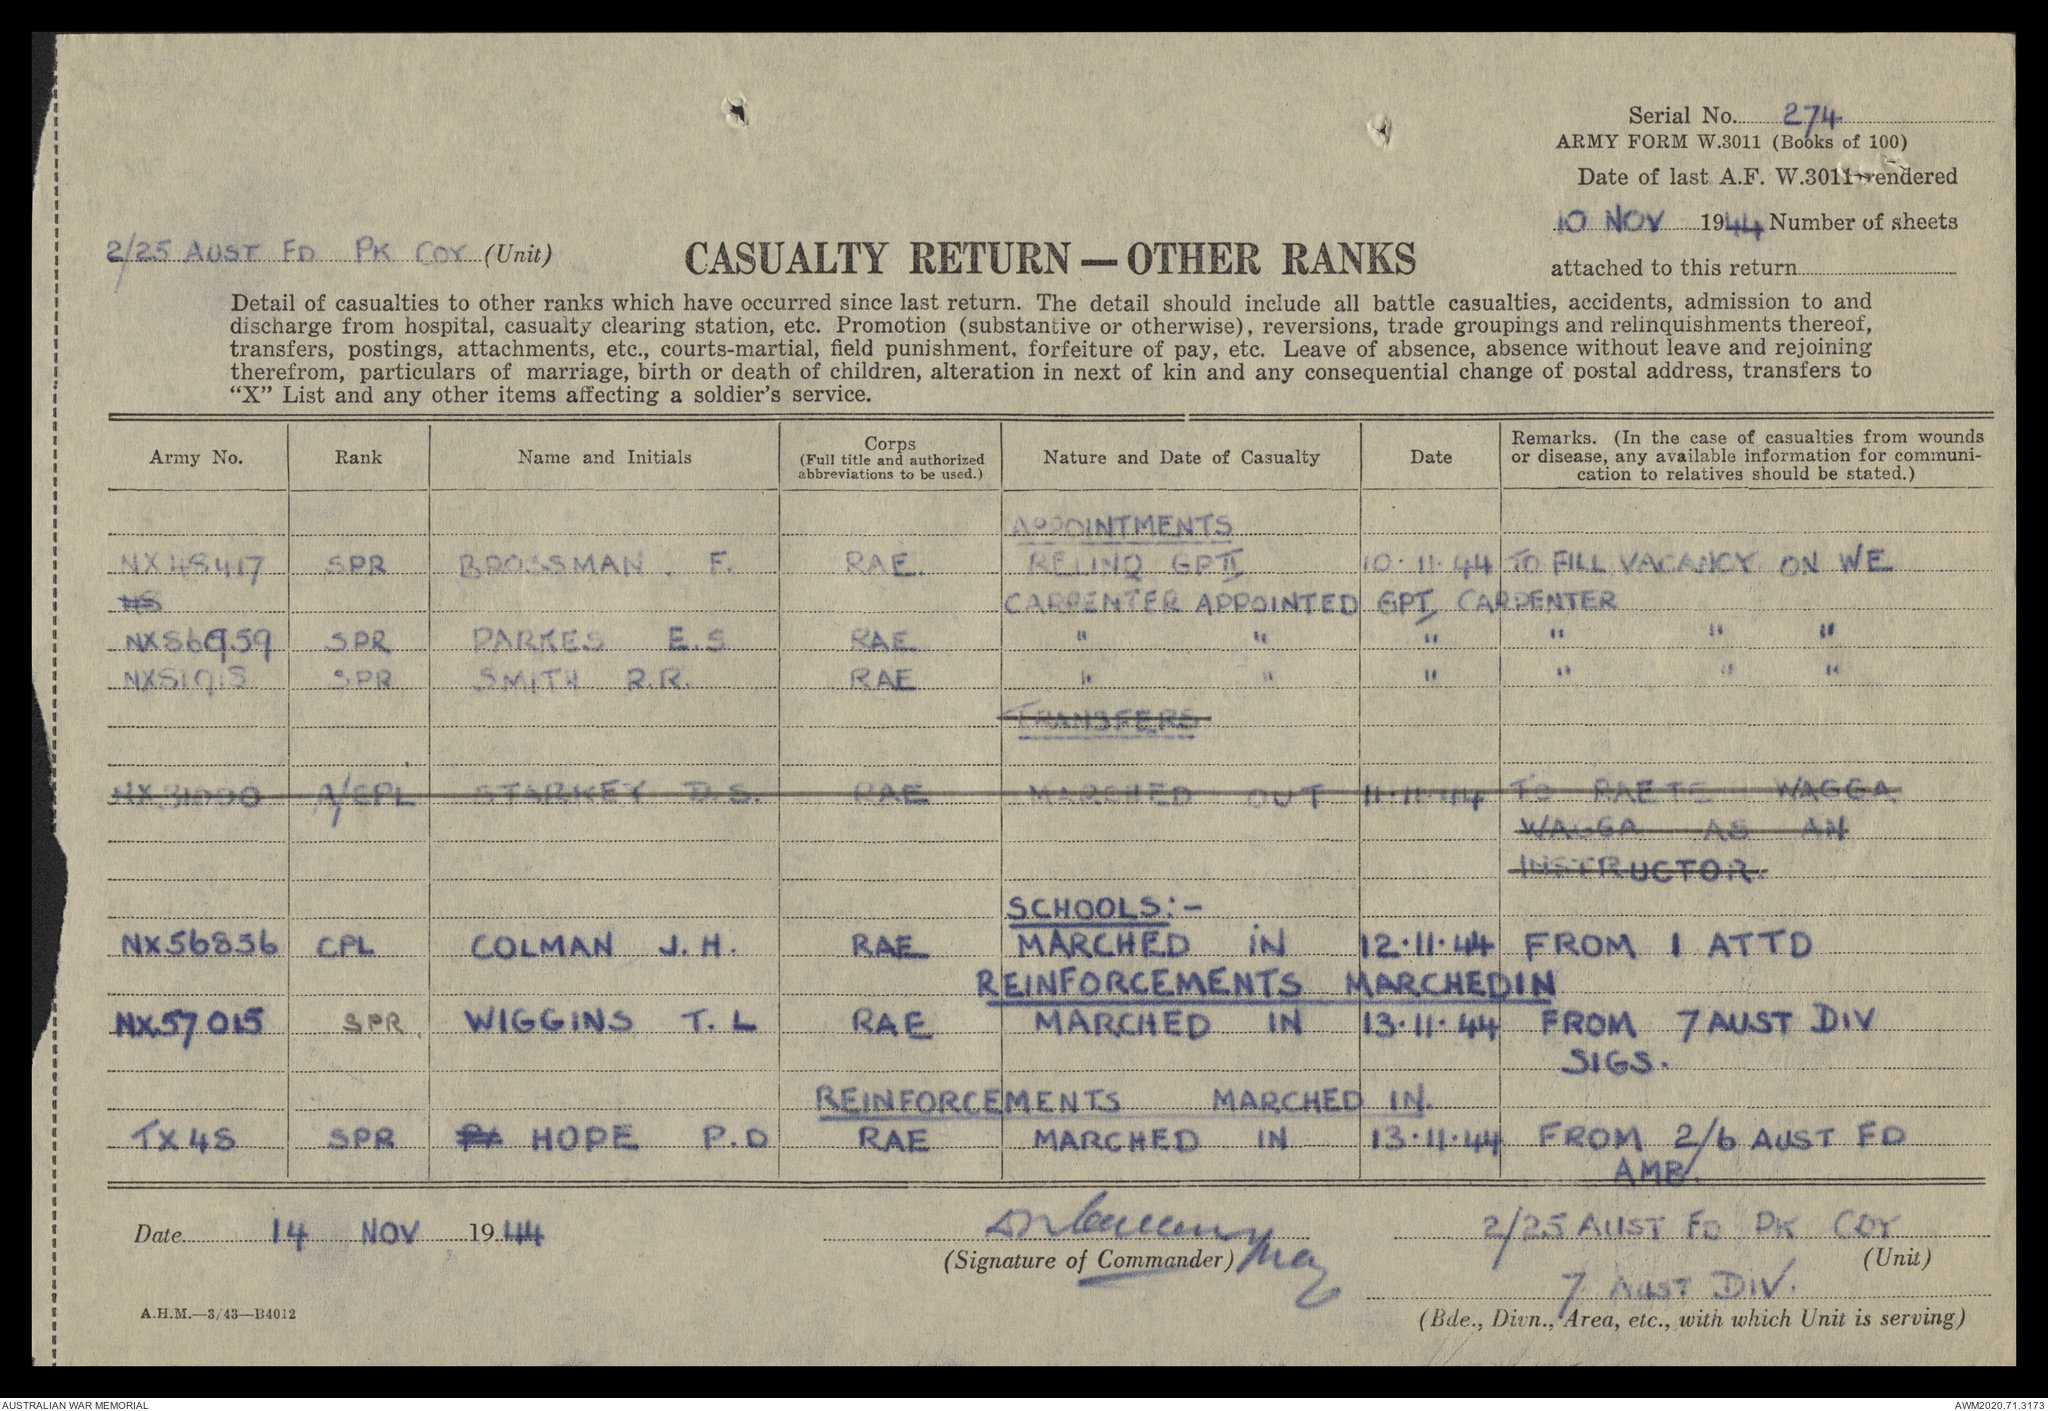 Serial No. 274
ARMY FORM W.3011 (Books of 100)
Date of last A.F. W.3011 rendered
10 NOV 1944 Number of sheets
attached to this return
2/25 AUST FD PK COY (Unit)
CASUALTY RETURN — OTHER RANKS
Detail of casualties to other ranks which have occurred since last return. The detail should include all battle casualties, accidents, admission to and
discharge from hospital, casualty clearing station, etc. Promotion (substantive or otherwise), reversions, trade groupings and relinquishments thereof,
transfers, postings, attachments, etc., courts-martial, field punishment, forfeiture of pay, etc. Leave of absence, absence without leave and rejoining
therefrom, particulars of marriage, birth or death of children, alteration in next of kin and any consequential change of postal address, transfers to
"X" List and any other items affecting a soldier's service.
Army No. Rank Name and Initials Corps (Full title and authorized abbreviations to be used.) Nature and Date of Casualty Date Remarks. (In the case of casualties from wounds or disease, any available information for communication to relatives should be stated.)
APPOINTMENTS
NX48417 SPR BROSSMAN . F. RAE. RELINQ GPII 10.11.44 TO FILL VACANCY ON WE
CARPENTER APPOINTED GPI CARPENTER
NX86959 SPR PARKES E.S RAE " " " " " "
SPR SMITH R.R. RAE " " " " " "
TRANSFERS
A/CPL STARKEY D.S. RAE MARCHED OUT 11.11.44 TO RAETC WAGGA
WAGGA AS AN
INSTRUCTOR.
SCHOOLS:-
NX56836 CPL COLMAN J.H. RAE MARCHED IN 12.11.44 FROM 1 ATTD
REINFORCEMENTS MARCHED IN
NX57015 SPR. WIGGINS T. L RAE MARCHED IN 13.11.44 FROM 7 AUST DIV
SIGS.
REINFORCEMENTS MARCHED IN.
TX48 SPR HOPE P.D RAE MARCHED IN 13.11.44 FROM 2/6 AUST FD
AMB.
Date 14 NOV 1944
(Signature of Commander)
2/25 AUST FD PK COY
(Unit)
7 AUST DIV.
(Bde., Divn., Area, etc., with which Unit is serving)
A.H.M.—3/43—B4012
AUSTRALIAN WAR MEMORIAL
AWM2020.71.3173